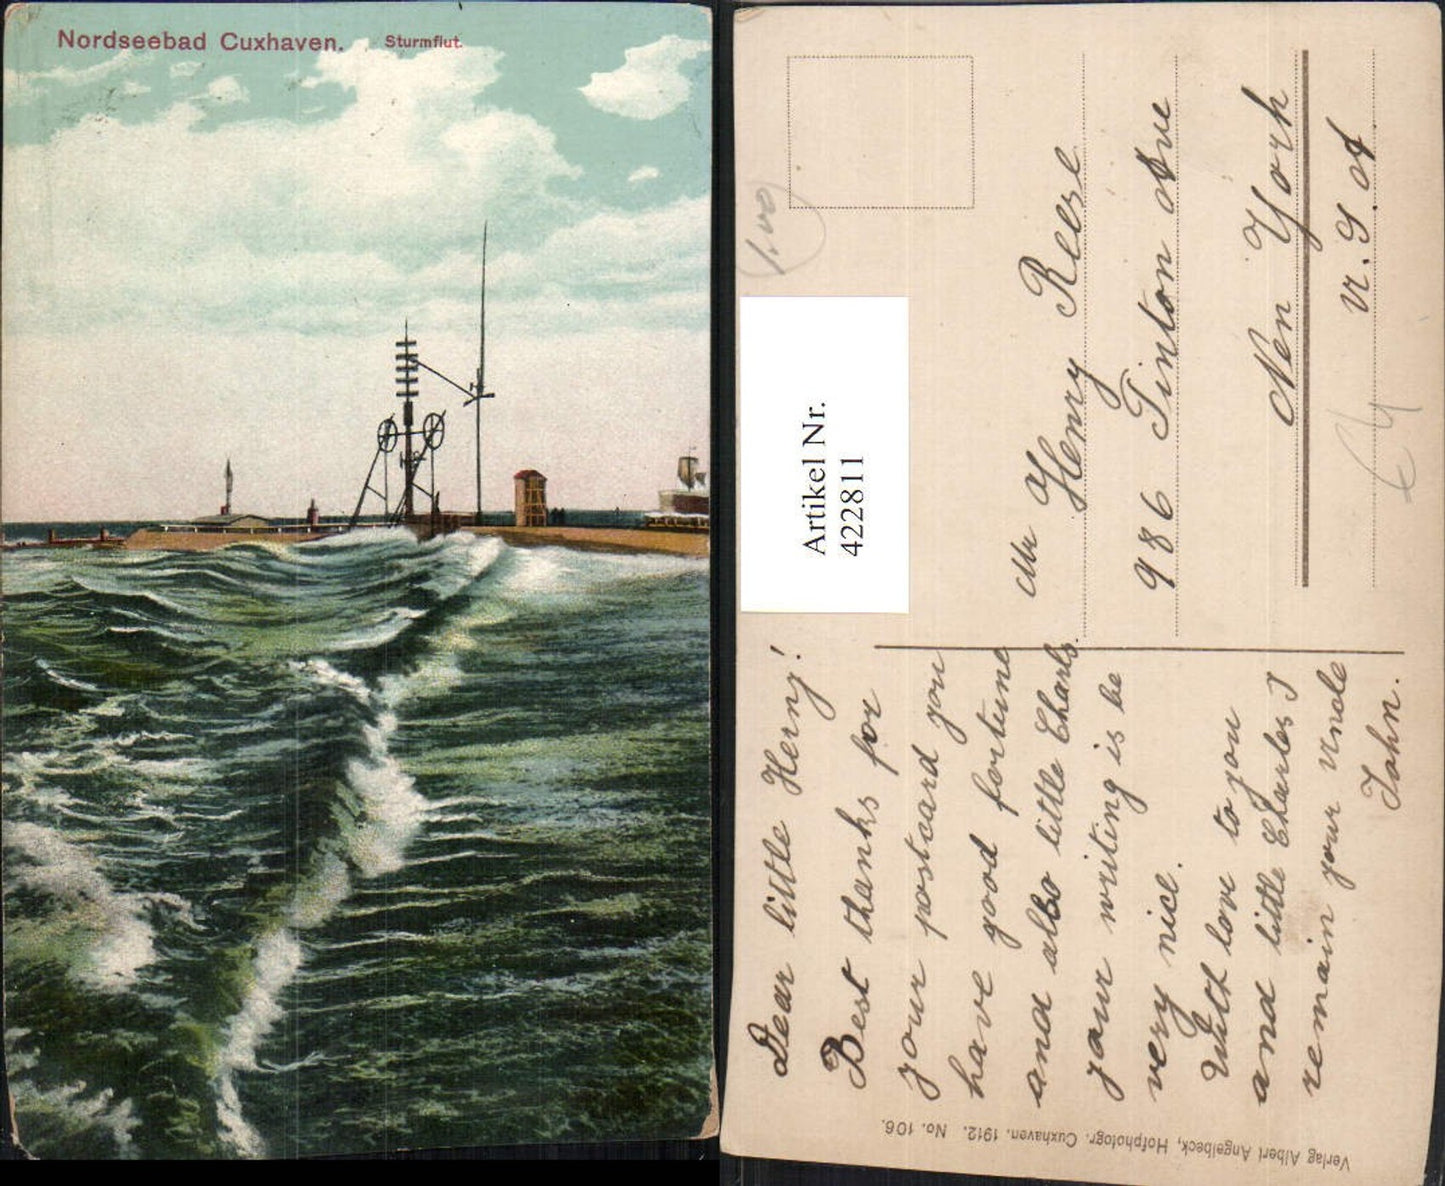 Nordseebad Cuxhaven. Sturmflut.
1.00
Artikel Nr.
422811
Dear little Herny!
Best thanks for
your postcard you
have good fortune
and also little Charls.
your writing is be
very nice.
With love to you
and little Charles I
remain your Uncle
John.
Mr Henry Reese
986 Tinton Ave
New York
U. S. A
Verlag Albert Angelbeck, Hofphotogr. Cuxhaven. 1912. No. 106.